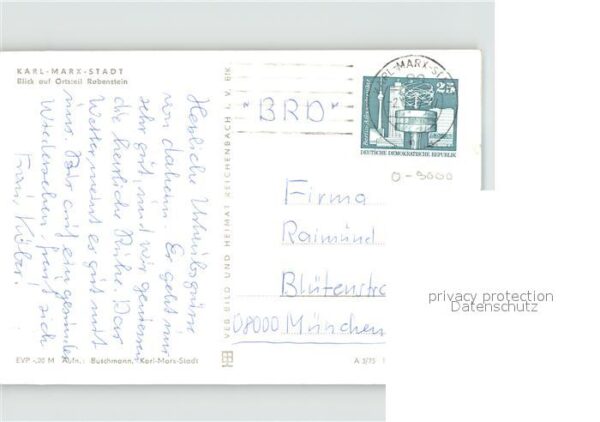 KARL-MARX-STADT
Blick auf Ortsteil Rabenstein
Herzliche Urlaubsgrüsse
von daheim. Es geht mir
sehr gut, und wir geniessen
die herrliche Ruhe. Das
Wetter meint es gut mit
uns. Bis auf ein gesundes
Wiedersehen freut sich
Frau Köber!
EVP -,20 M Aufn.: Buschmann, Karl-Marx-Stadt
VEB BILD UND HEIMAT REICHENBACH I. V. BTK
A 3/75
"BRD"
KARL-MARX-S
25
DEUTSCHE DEMOKRATISCHE REPUBLIK
O-9000
Firma
Raimund
Blütenstra
08000 München
privacy protection
Datenschutz